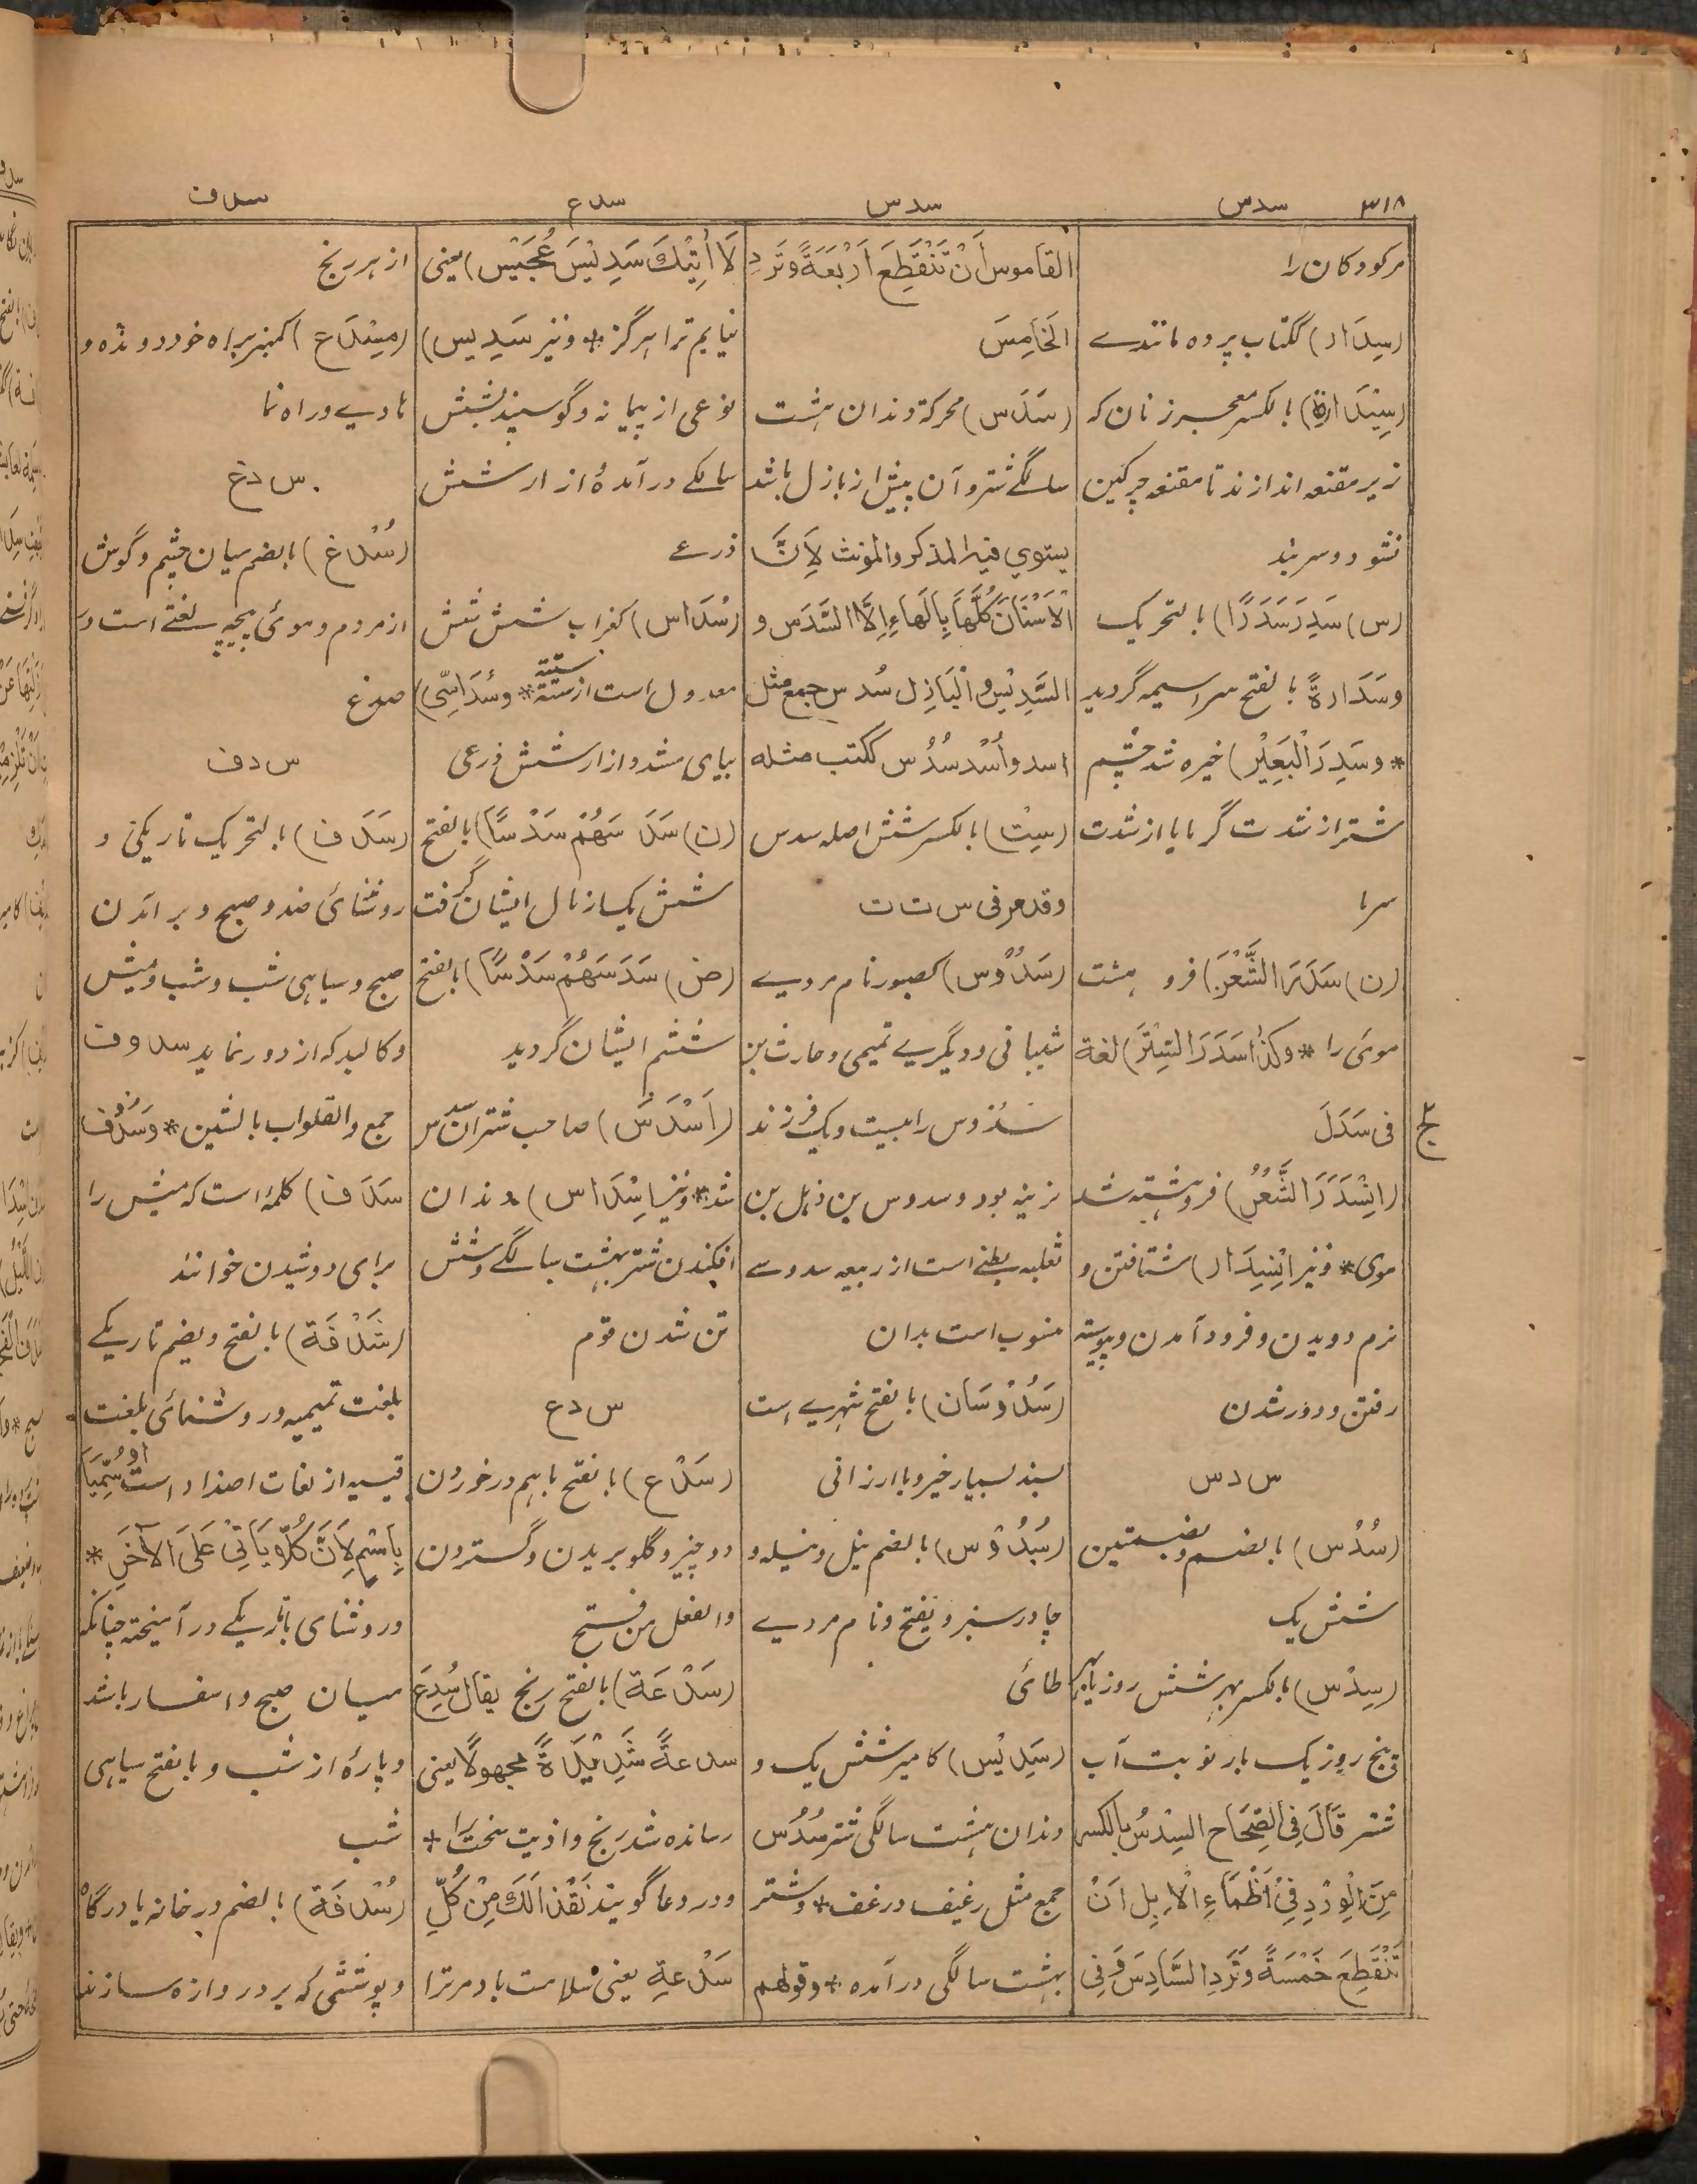 ۳۱۸ سدس سدس سدع سدف
مر کودکان را
(سِدَار) ککتاب پرده مانندے
(سِیْدَارة) بالکسر معجر زنان که
زیر مقنعه اندازند تا مقنعه چرکین
نشود و سربند
(س) سَدِرَ سَدَرًا) بالتحریک
وسَدَارةً بالفتح سراسیمه گردید
* وسَدِرَ الْبَعِیْرُ) خیره شد چشم
شتر از شدت گرما یا از شدت
سرما
(ن) سَدَرَ الشَّعْرَ) فرو هشت
موی را * وکذا سَدَرَ السِتْرَ) لغة
فی سَدَلَ
(اِنْسَدَرَ الشَّعْرُ) فروهشته شد
موی * ونیز اِنْسِدَار) شتافتن و
نرم دویدن و فرود آمدن و پیوسته
رفتن و دور شدن
س د س
(سُدُس) بالضم وبضمتین
شش یک
(سِدْس) بالکسر بهر شش روز یا بهر
پنج روز یک بار نوبت آب
شتر قَالَ فِی الصِّحَاحِ السِدْسُ بالکسر
مِنَ الْوِرْدِ فِیْ اَظْمَاءِ الْاِبِلِ اَنْ
تَنْقَطِعَ خَمْسَةً وَتَرِدَ السَّادِسَ وَفِی
القاموس اَنْ تَنْقَطِعَ اَرْبَعَةً وتَرِدَ
الْخَامِسَ
(سَدَس) محرکة دندان هشت
سالگے شتر و آن پیش از بازل باشد
یستوی فیه المذکر والمؤنث لِاَنَّ
الْاَسْنَانَ کُلَّهَا بِالْهَاءِ اِلَّا السَّدَسَ و
السَّدِیْسَ والْبَازِل سُدس جمع مثل
اسد واُسْد سُدُس ککتب مثله
(سِتّ) بالکسر شش اصله سدس
وقد مر فی س ت ت
(سَدُوْس) کصبور نام مردے
شیبانی و دیگرے تمیمی و حارث بن
سَدُوس را بیست و یک فرزند
نرینه بود و سدوس بن ذهل بن
ثعلبه بطنے است از ربیعه سدوسے
منسوب است بدان
(سَدُوْسَان) بالفتح شهرے است
بسند بسیار خیر و با ارزانی
(سُدُوْس) بالضم نیل و نیله و
چادر سبز و یفتح و نام مردے
طائی
(سَدِیْس) کامیر شش یک و
دندان هشت سالگی شتر سُدُس
جمع مثل رغیف و رغف * وشتر
بهشت سالگی در آمده * وقولهم
لَا اٰتِیْكَ سَدِیْسَ عُجَیْس) یعنی
نیایم ترا هرگز * ونیز سَدِیس)
نوعی از پیمانه و گوسپند بشش
سالگے در آمده و ازار شش
ذرعے
(سُدَاس) کغراب شش شش
معدول است از ستة ستة * وسُدَاسِیّ)
بیای مشدد ازار شش ذرعی
(ن) سَدَسَهُمْ سَدْسًا) بالفتح
شش یک از مال ایشان گرفت
(ض) سَدَسَهُمْ سَدْسًا) بالفتح
ششم ایشان گردید
(اَسْدَسَ) صاحب شتران سدس
شد * ونیز اِسْدَاس) دندان
افکندن شتر بهشت سالگے و شش
تن شدن قوم
س د ع
(سَدْع) بالفتح باهم در خوردن
دو چیز و گلو بریدن و گستردن
والفعل من فتح
(سَدْعَة) بالفتح رنج یقال سُدِعَ
سدعةً شَدِیْدَةً مجهولاً یعنی
رسانده شد رنج و اذیت سخت را *
و در دعا گویند نَقْذًا لَكَ مِنْ کُلِّ
سَدْعةٍ یعنی سلامت باد مر ترا
از هر رنج
(مِسْدَع) کمنبر براه خود رونده و
هادے و راه نما
س د غ
(سُدْغ) بالضم میان چشم و گوش
از مردم و موی پیچه لغتے است در
صدغ
س د ف
(سَدَف) بالتحریک تاریکی و
روشنائی ضد و صبح و بر آمدن
صبح و سیاهی شب و شب و میش
و کالبد که از دور نماید سدوف
جمع والصواب بالشین * وسَدَف
سَدَف) کلمه است که میش را
برای دوشیدن خوانند
(سَدْفَة) بالفتح و یضم تاریکے
بلغت تمیمیه و روشنائی بلغت
قیسیه از لغات اضداد است اَوْ سُمِّیَا
بِاسْمٍ لِاَنَّ کُلًّا یَاْتِیْ عَلَی الْاٰخَرِ *
و روشنای با تاریکے در آمیخته چنانکه
میان صبح و اسفار باشد
و پارۀ از شب و بالفتح سیاهی
شب
(سُدْفَة) بالضم در خانه یا درگاه
و پوششی که بر دروازه سازند